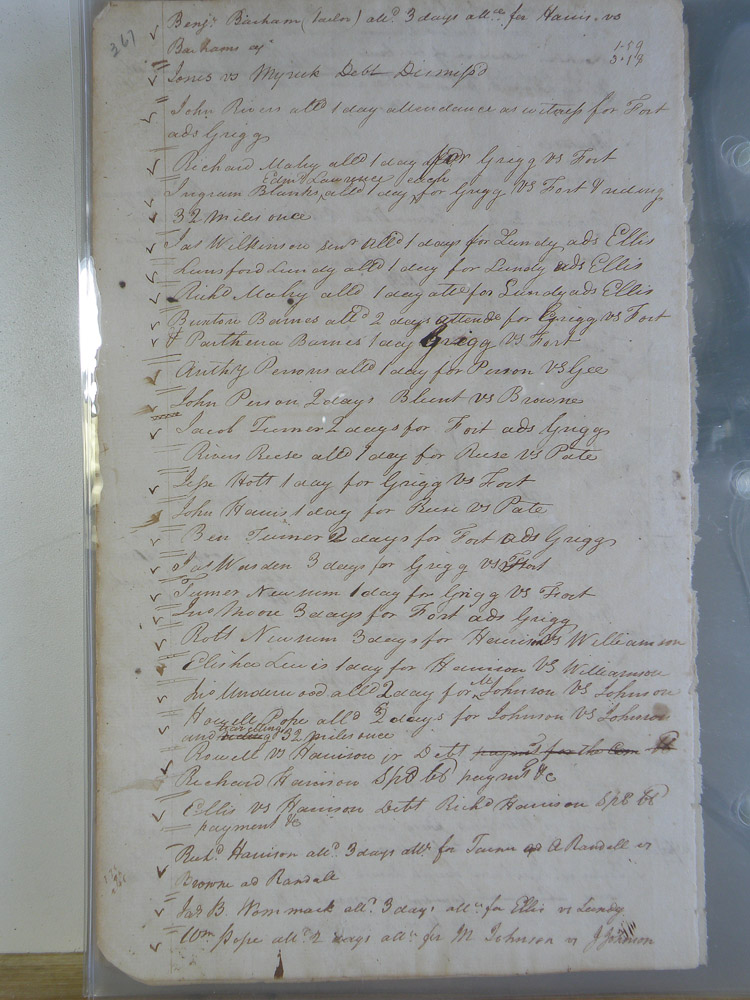 367
Benj.ⁿ Barham (Tailor) all.ᵈ 3 days att.ᶜᵉ for Harris vs
Barhams
1.59
3.18
Jones vs Myrick Debt Dismiss'd
John Rivers alld 1 day attendance as witness for Fort
ads Grigg
Richard Maby alld 1 day for Grigg vs Fort
Edm.ᵈ Lawrence each
Ingram Blanks, alld 1 day, for Grigg VS Fort & riding
32 miles once
Jas Wilkinson senr alld 1 days for Lundy ads Ellis
Lunsford Lundy alld 1 day for Lundy ads Ellis
Richd Maby alld 1 day atte for Lundy ads Ellis
Buxton Barnes alld 2 days attende for Grigg vs Fort
& Parthena Barnes 1 day Grigg VS Fort
Anthy Persons alld 1 day for Person VS Gee
John Person 2 days Blunt vs Browne
Jacob Turner 2 days for Fort ads Grigg
Rivers Reese alld 1 day for Reese vs Pate
Jesse Holt 1 day for Grigg VS Fort
John Harris 1 day for Reese vs Pate
Ben Turner 2 days for Fort ads Grigg
Jas Worsden 3 days for Grigg VS Fort
Turner Newsum 1 day for Grigg VS Fort
Jno Moore 3 days for Fort ads Grigg
Robt Newsum 3 days for Harrison VS Williamson
Elisha Lewis 1 day for Harrison VS Williamson
Jno Underwood alld 2 day for M Johnson VS Johnson
Howell Pope alld 2 days for Johnson VS Johnson
travelling
and riding 32 miles once
Rowell VS Harrison jr Debt paymt for the
Richard Harrison Spl bl paymt &c
Ellis vs Harrison Debt Richd Harrison Spl bl
payment &c
Richd Harrison alld 3 days atte for Turner ad A Randall vs
Browne ad Randall
Jas B. Wommack alld 3 days atte for Ellis vs Lundy
Wm Pope alld 2 days atte for M Johnson vs J Johnson